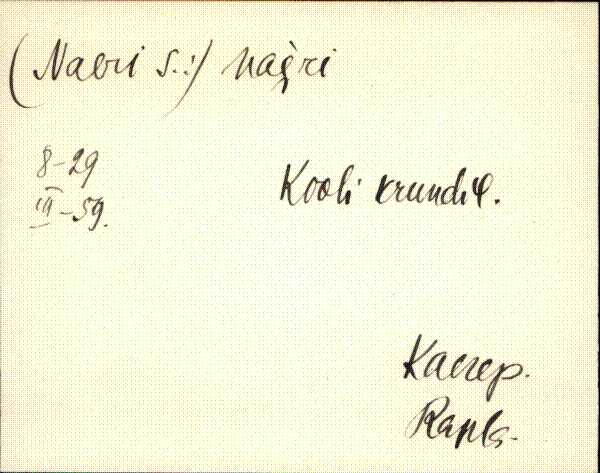 (Nabri s.:) nagri
8-29
III-59.
Kooli krundil.
Kaerep.
Rapla.